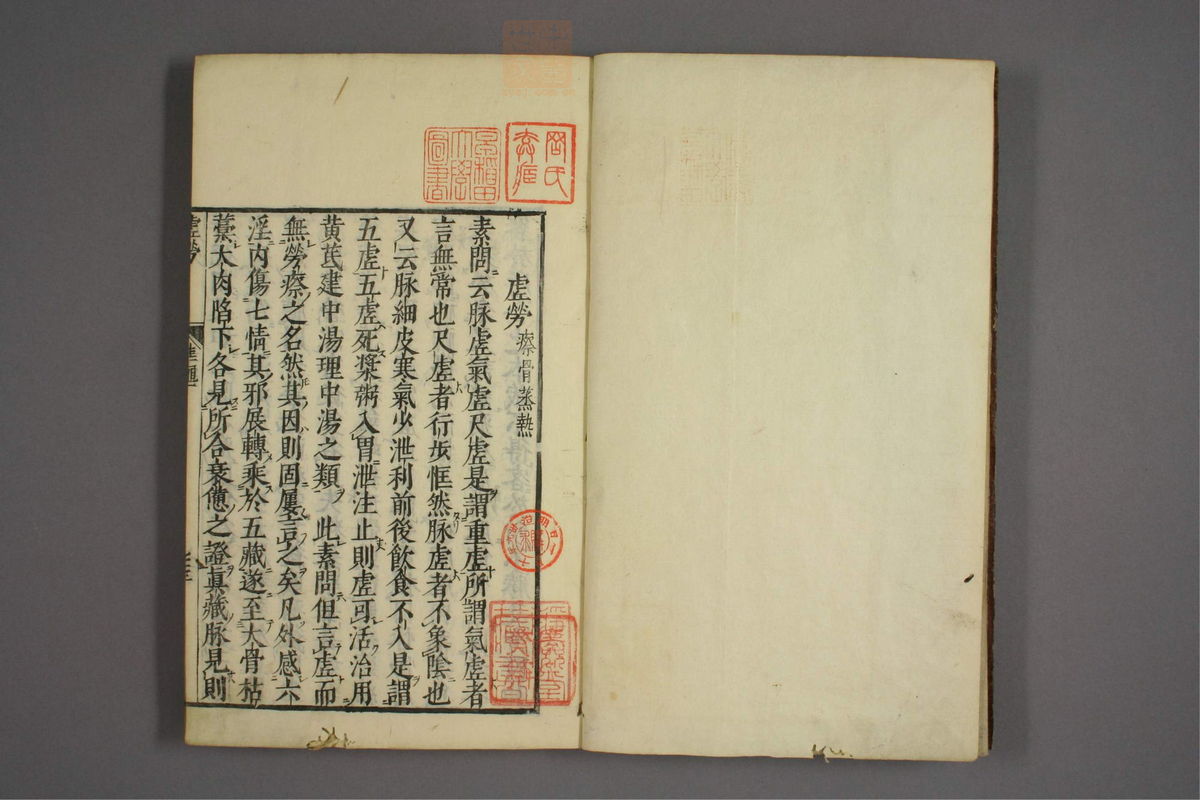 虛勞 瘵骨蒸熱
素問云脉虛氣虛尺虛是謂重虛所謂氣虛者
言無常也尺虛者行步恇然脉虛者不象陰也
又云脉細皮寒氣少泄利前後飲食不入是謂
五虛五虛死漿粥入胃泄注止則虛可活治用
黄芪建中湯理中湯之類 此素問但言虛而
無勞瘵之名然其因則固屢言之矣凡外感六
淫内傷七情其邪展轉乘於五藏遂至大骨枯
藁大肉陷下各見所合衰憊之證眞藏脉見則
虛勞
早稻田大學圖書